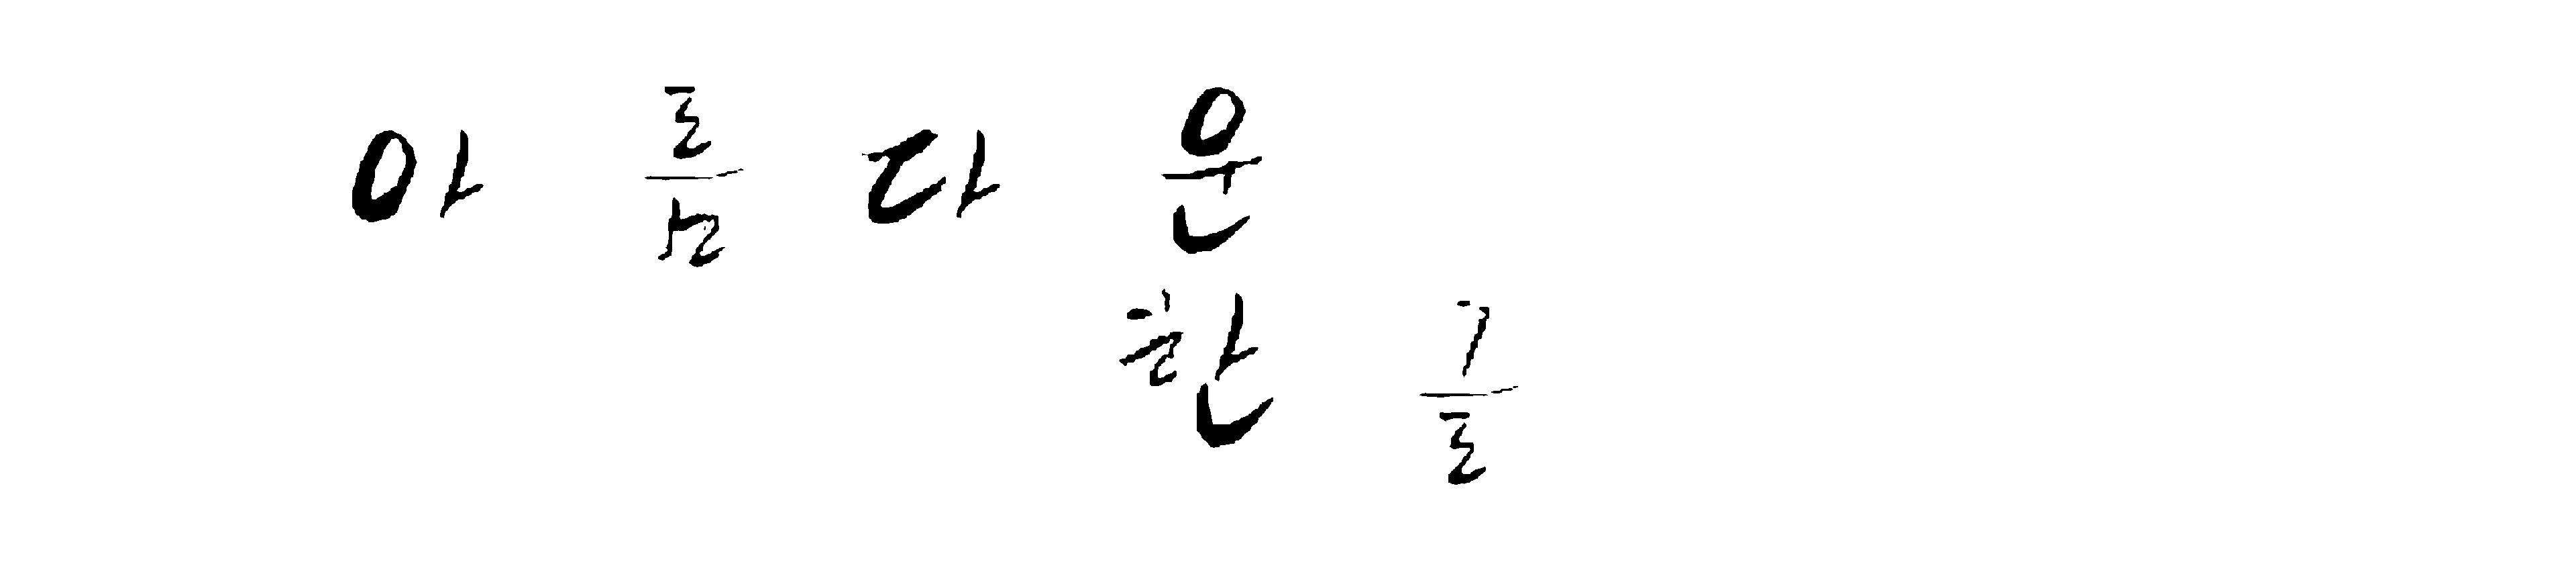 아름다운
한글